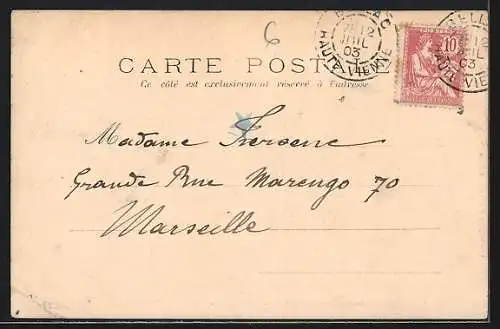 6
CARTE POSTALE
Ce côté est exclusivement réservé à l'adresse
BELLAC
7E 12
JUIL
03
HAUTE VIENNE
10
BELLAC
12
JUIL
03
HAUTE VIENNE
Madame
Grande Rue Marengo 70
Marseille